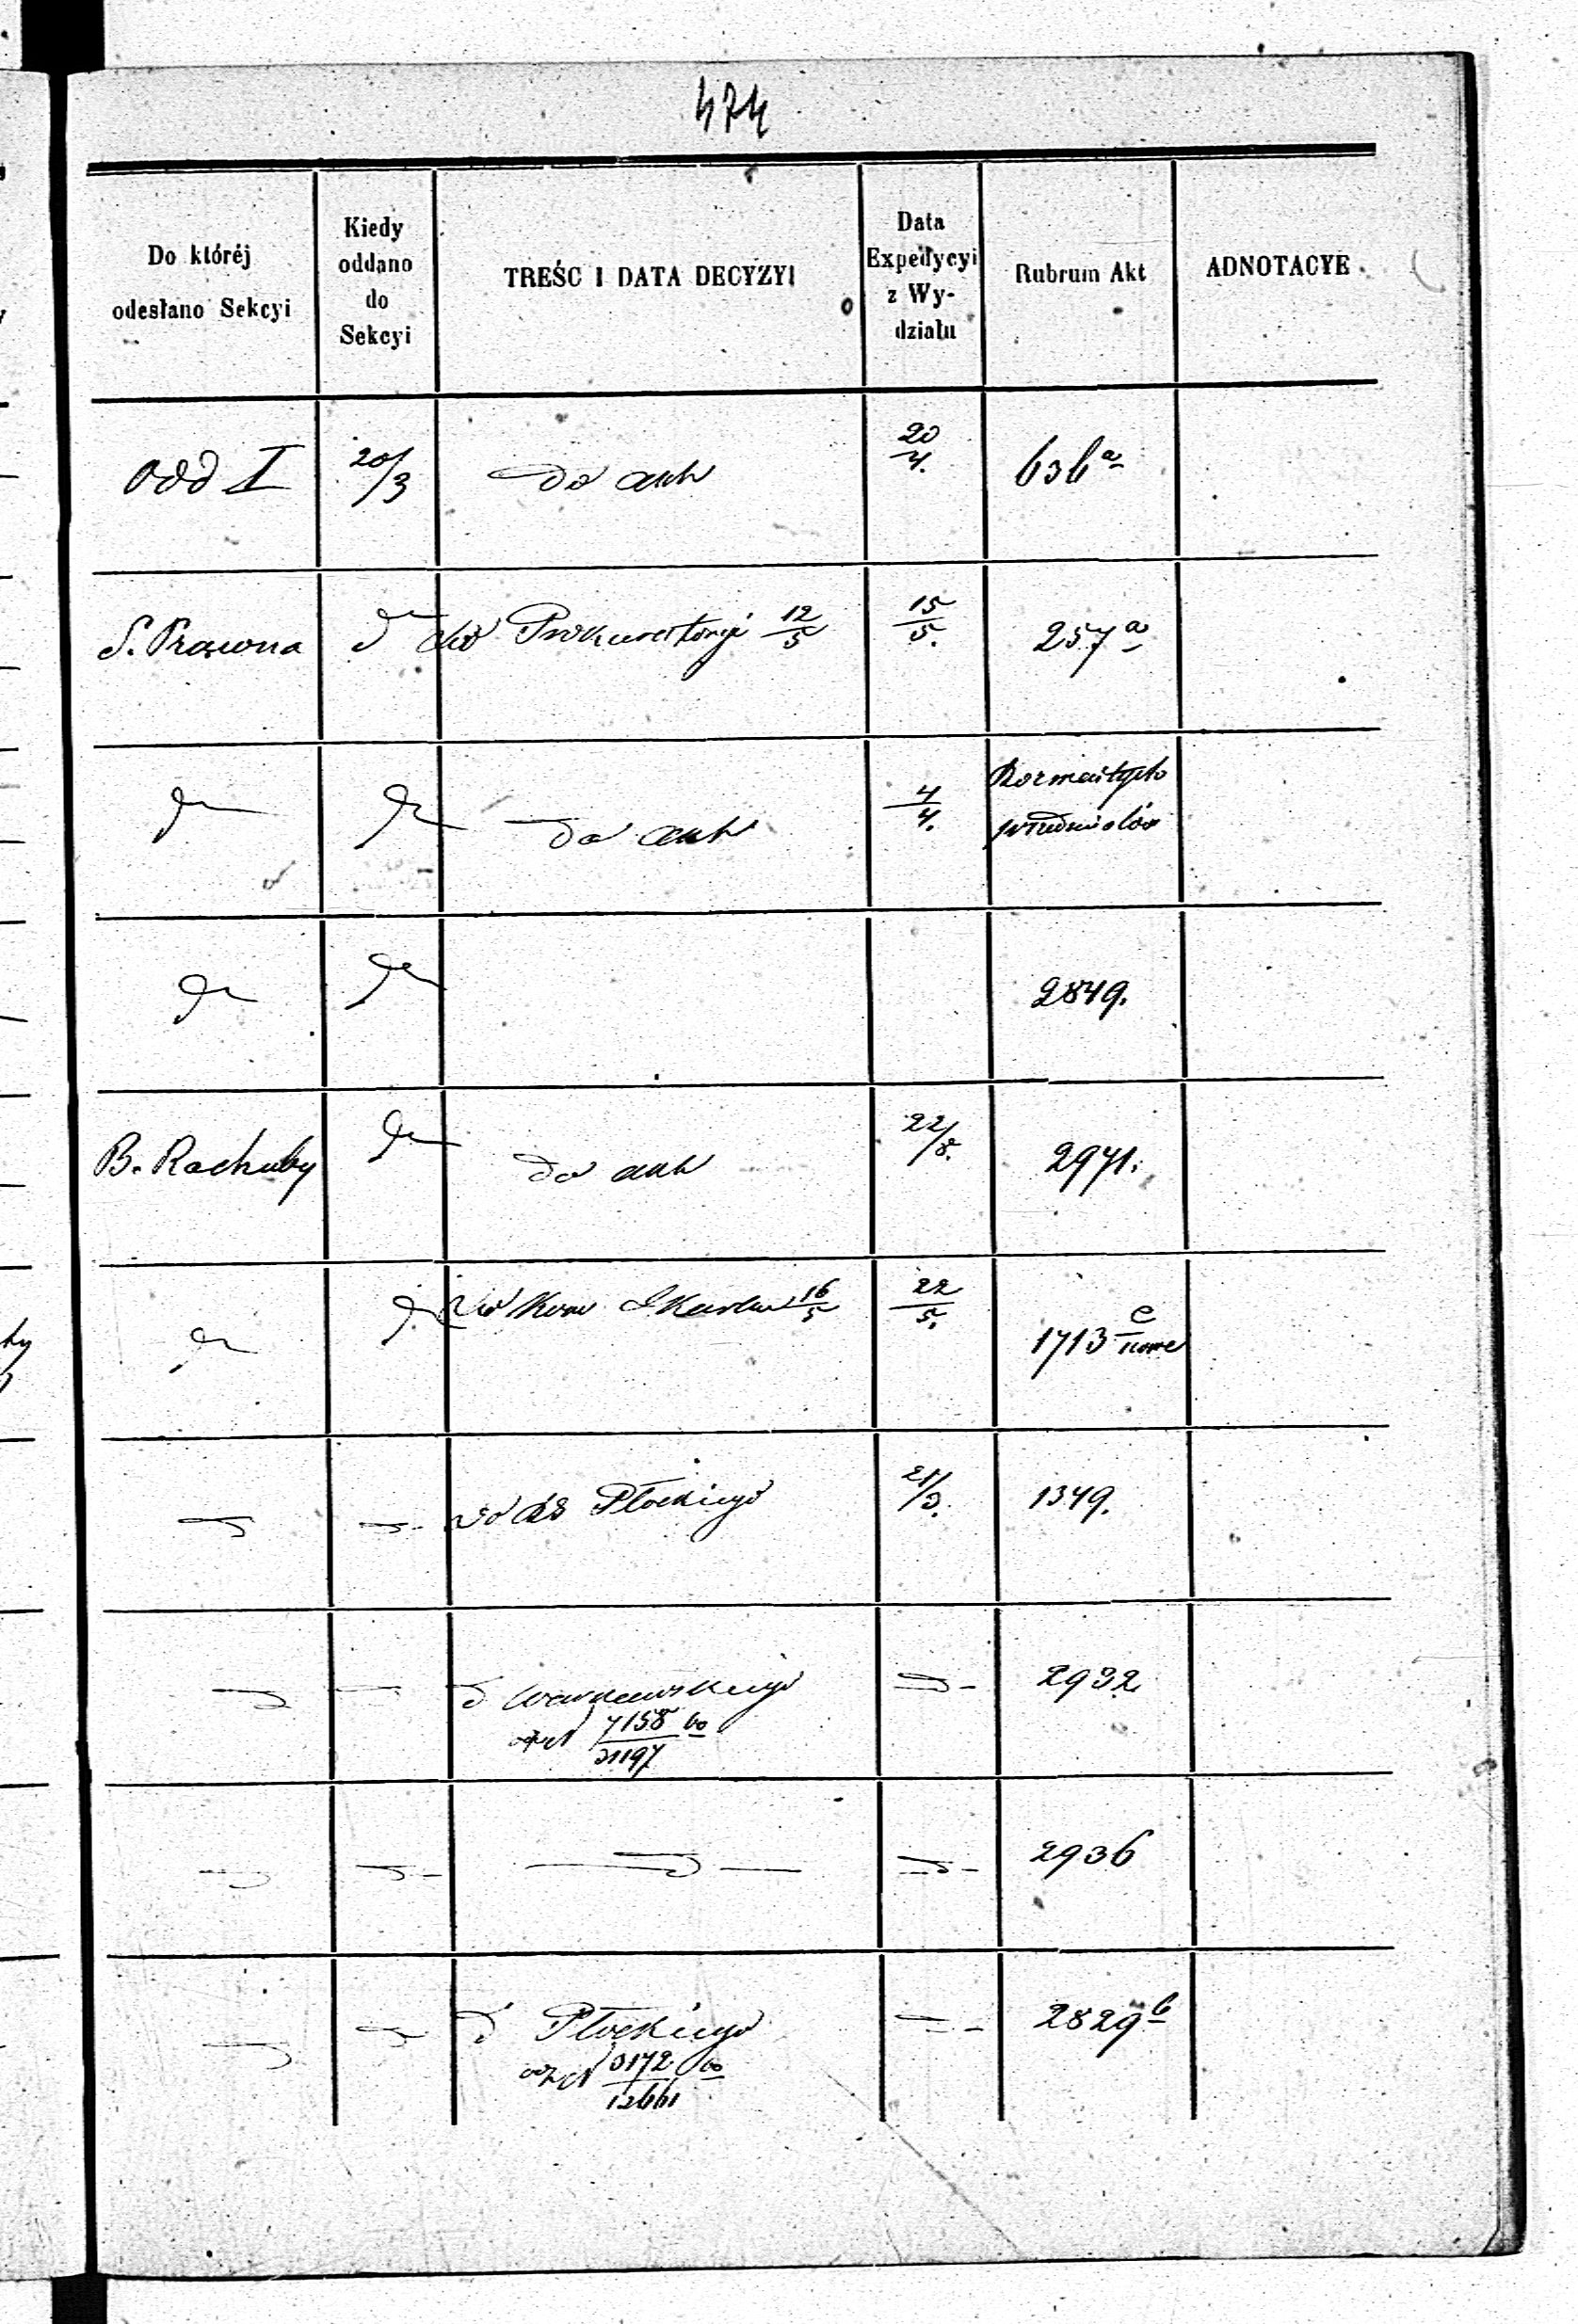 474
Do któréj
odesłano Sekcyi
Kiedy
oddano
do
Sekcyi
TREŚC I DATA DECYZYI
Data
Expedycyi
z Wy-
działu
Rubrum Akt
ADNOTACYE
Odd I 20/3 do akt 20/4. 636a
S. Prawna do Prokuratoryi 12/5 15/5. 257a
do akt 4/4. Rozmaitych
przedmiotów
2849.
B. Rachuby do akt 22/8. 2971.
do Kom Skarbu 16/5 22/5. 1713 e/nowe
do Płockiego 21/3. 1349.
Warszawskiego 2932
7158/31197
2936
Płockiego 2829b
3172/12661